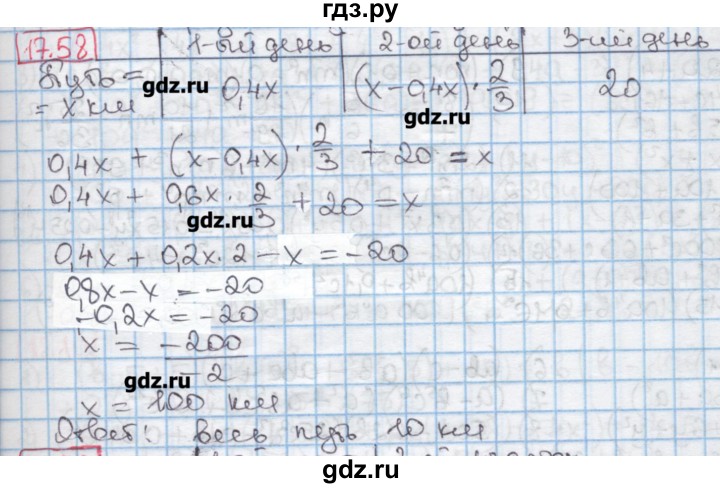 гдз.ру
17.58 1-ый день 2-ой день 3-ий день
Путь =
= x км 0,4x (x-0,4x)·2/3 20
gdz.ru gdz.ru
0,4x + (x-0,4x)·2/3 + 20 = x
0,4x + 0,6x·2/3 + 20 = x
gdz.ru
0,4x + 0,2x·2 - x = -20
0,8x - x = -20
-0,2x = -20
x = -200/-2
gdz.ru
x = 100 км
Ответ: весь путь 10 км
gdz.ru